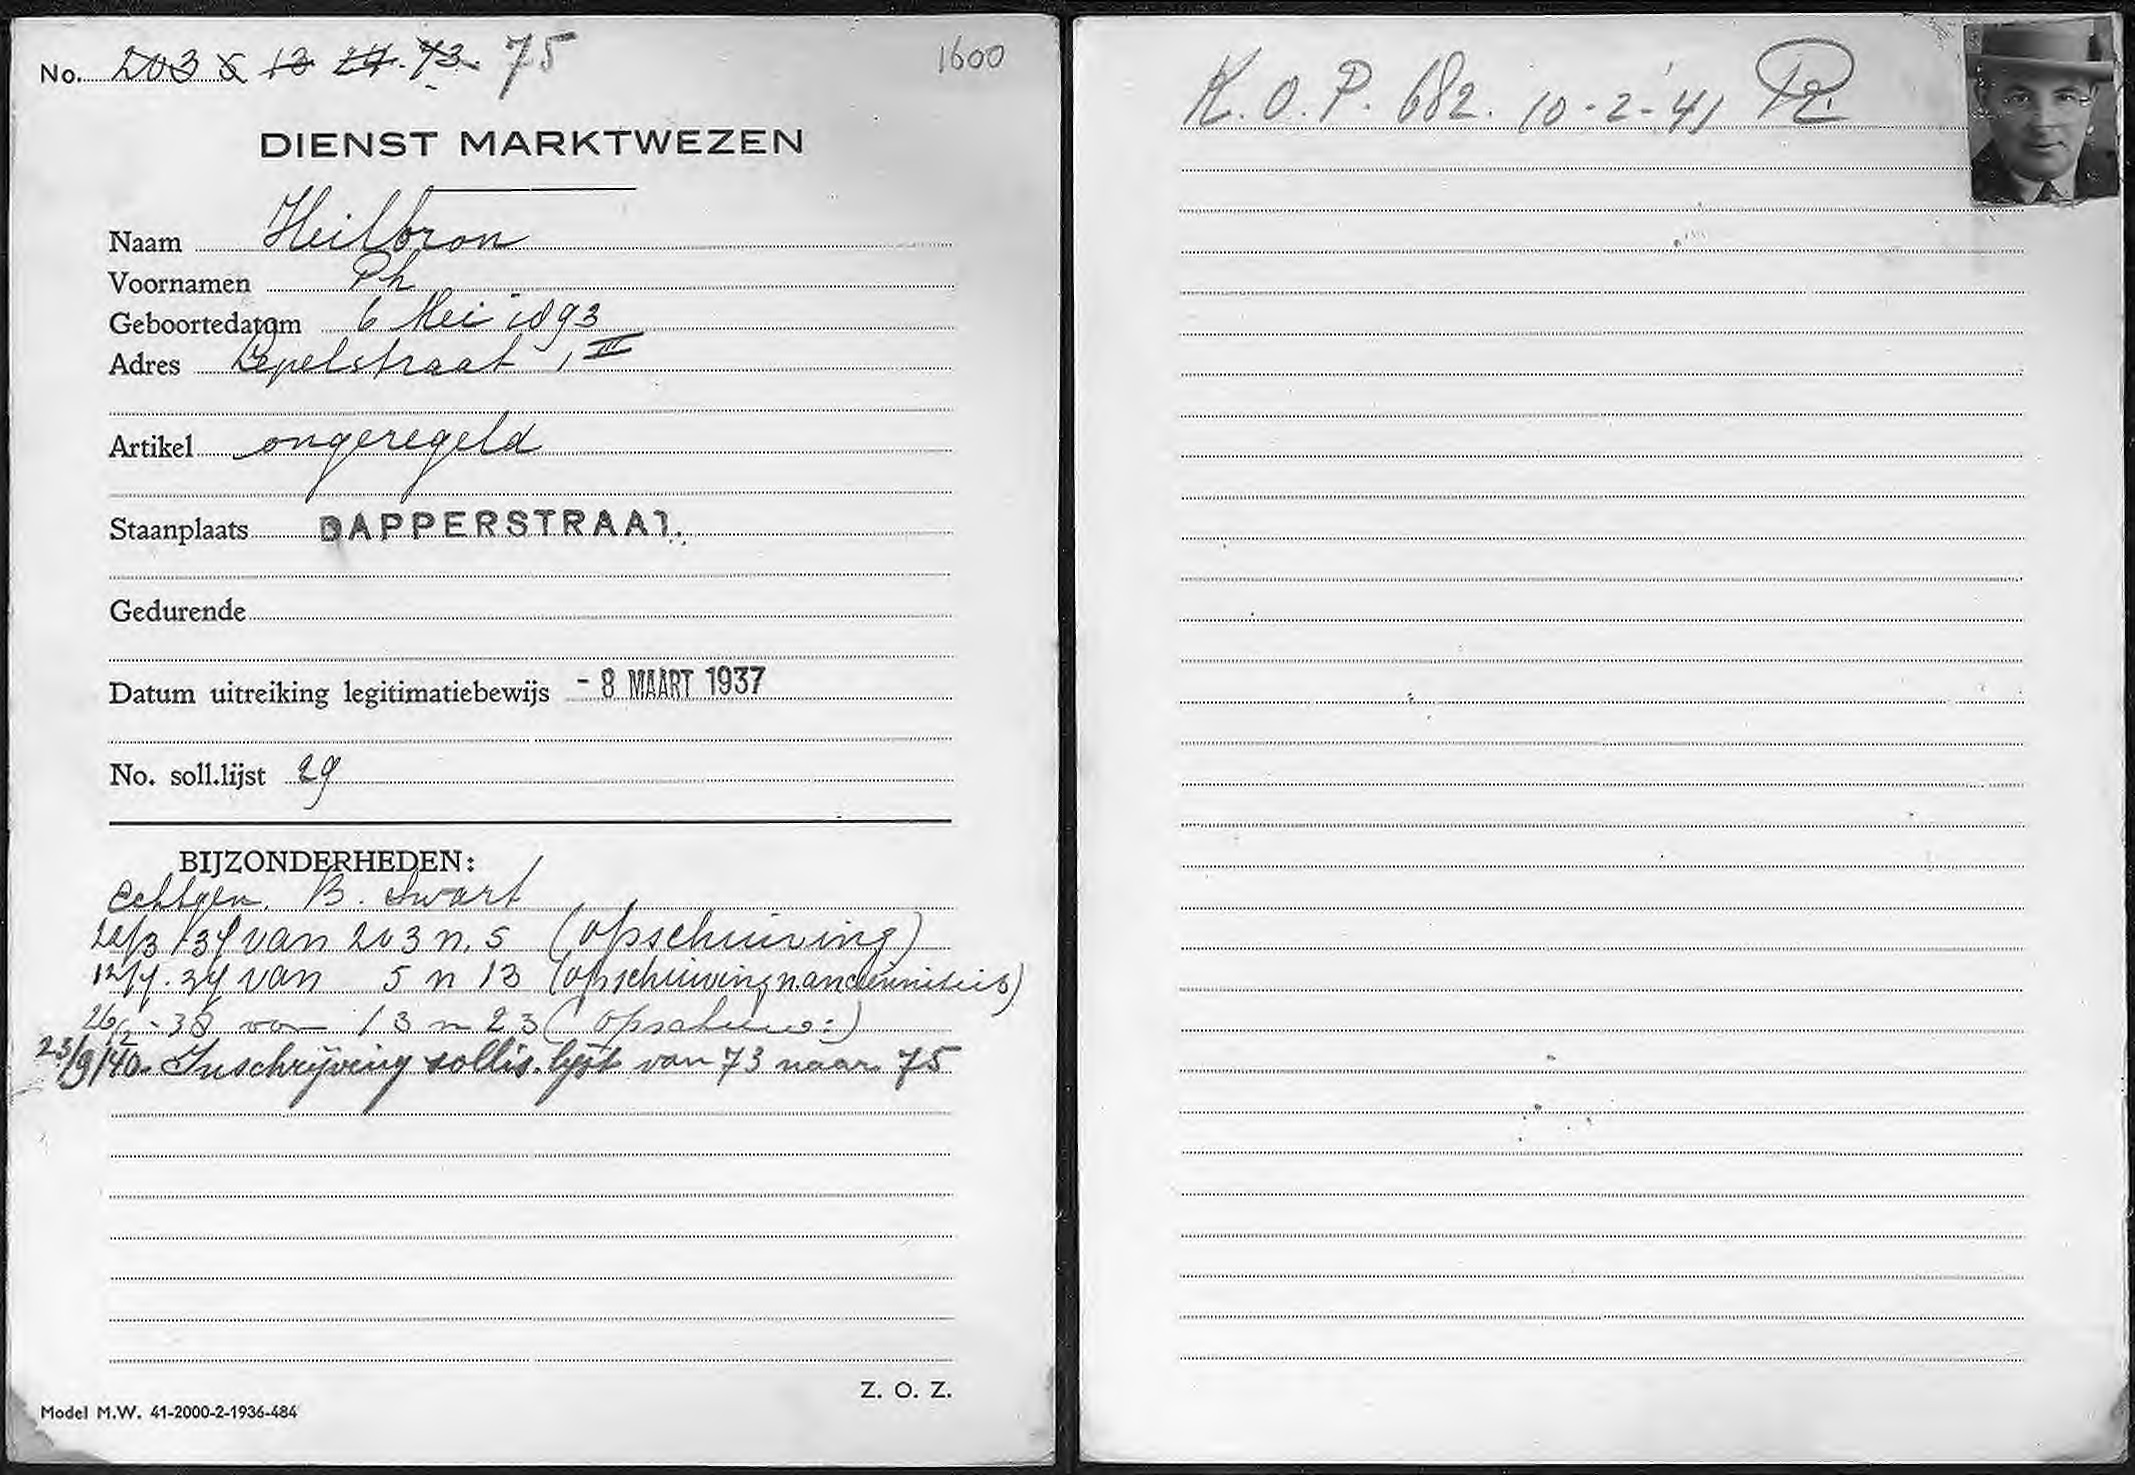 No. 203 5 13 24. 73. 75
1600
DIENST MARKTWEZEN
Naam Heilbron
Voornamen Ph
Geboortedatum 6 Mei 1893
Adres Lepelstraat 1 III
Artikel ongeregeld
Staanplaats DAPPERSTRAAT.
Gedurende
Datum uitreiking legitimatiebewijs - 8 MAART 1937
No. soll.lijst 29
BIJZONDERHEDEN:
Echtgen. B. Swart
van 203 n. 5 (opschuiving)
12/4. 37 van 5 n 13 (opschuiving
26/2 - 38 van 13 n 23 (opschuiv:)
23/9/40. Inschrijving sollis. lijst van 73 naar 75
Z. O. Z.
Model M.W. 41-2000-2-1936-484
K. O. P. 682. 10-2-'41